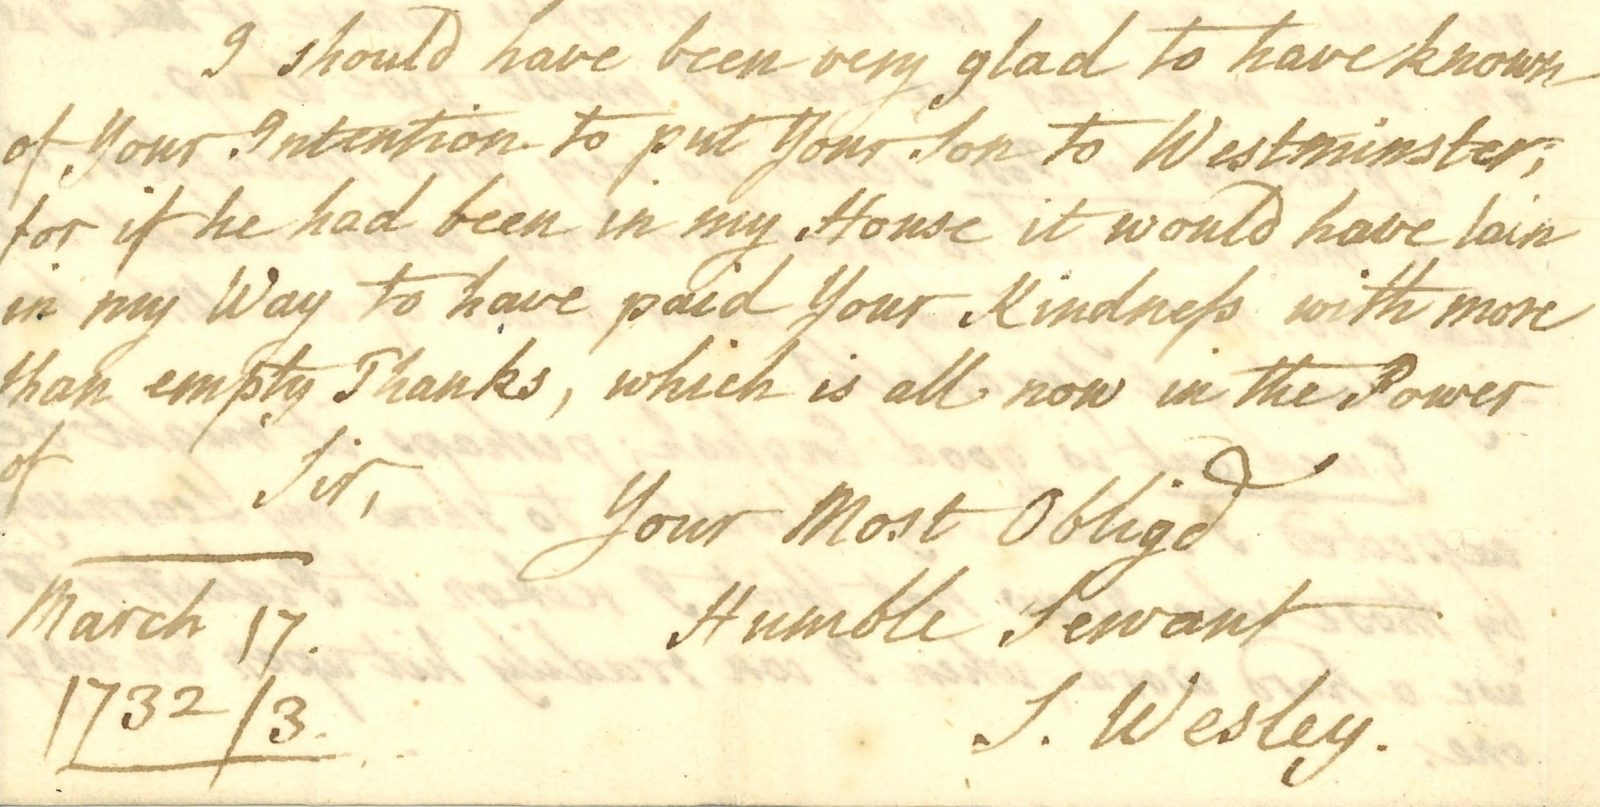 I should have been very glad to have known
of Your Intention to put Your Son to Westminster;
for if he had been in my House it would have lain
in my Way to have paid Your Kindneſs with more
than empty Thanks, which is all now in the Power
of Sir,
Your Most Obligd
Humble Servant
S. Wesley.
March 17.
1732/3.